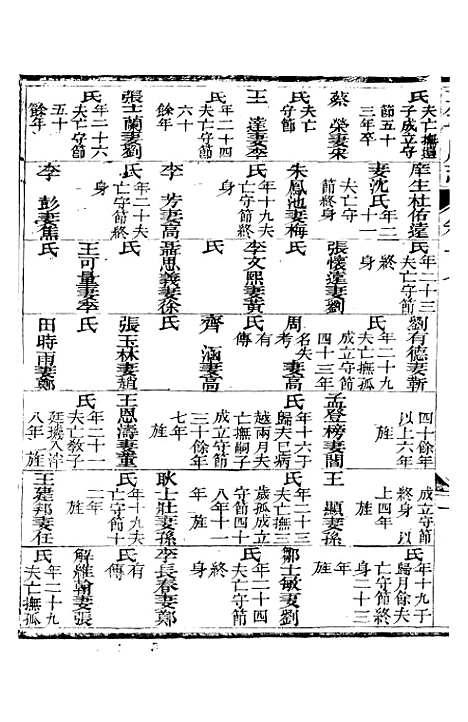 氏夫亡撫遺
子成立守
節五十
三年卒
蔡榮妻宋
氏夫亡
守節
王達妻李
氏年二十四
夫亡守節
六十
餘年
張士蘭妻劉
氏年二十六
夫亡守節
五十
餘年
庠生杜佑達
妻沈氏年二
十一
夫亡守
節終身
朱鳳池妻梅
氏年十九夫
亡守節終
身
李芳妻高
氏年二十夫
亡守節終
身
李彭妻焦
氏年二十三
夫亡守節
終
身
張懷蓮妻劉
氏
李文熙妻黃
氏
聶思義妻徐
氏
王可量妻李
氏
劉有德妻靳
氏年二十九
夫亡撫孤
成立守節
四十三年
周名失考妻高
氏有傳
齊涵妻高
氏
張玉林妻趙
氏
田時雨妻鄭
四十餘年
以上六年
旌
孟登榜妻閻
氏年十六于
歸夫已病
越兩月夫
亡嗣子
成立守節
三十餘年
七年
旌
王恩濤妻董
氏年二十一
夫亡教子
廷璣入泮
八年旌
成立守節
終身以
上四年
旌
王顯妻孫
氏年二十三
夫亡撫三
歲孤成立
守節四
十一年
八年
旌
耿士壯妻孫
氏年十九夫
亡守節十
二年
旌
王建邦妻任
氏年十九于
歸月餘夫
亡守節終
身二十三
年旌
鄒士敏妻劉
氏年二十四
夫亡守節
終
身
李長春妻鄭
氏有傳
解維翰妻張
氏年二十九
夫亡撫孤